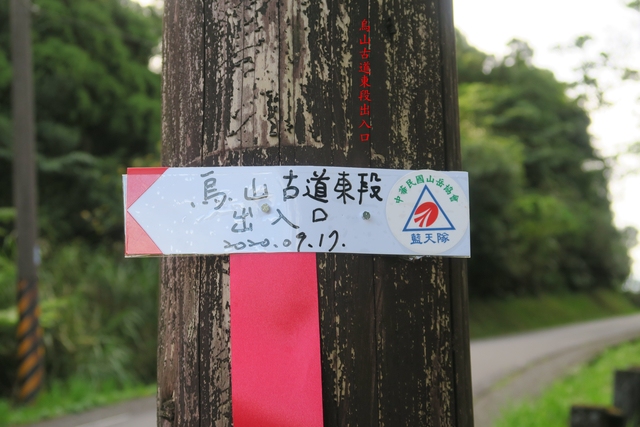 烏山古道東段出入口
烏山古道東段
出入口
2020.09.17.
中華民國山岳協會
藍天隊